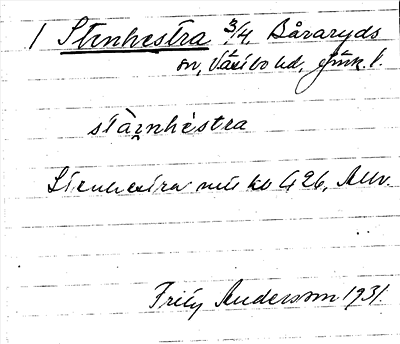 1 Stenhestra 3/4, Båraryds
sn, Västbo hd, Jönk. l.
stä̀rnhèstra
Stenhestra mtl kb 426, ALLV.
Fritz Andersson 1931.